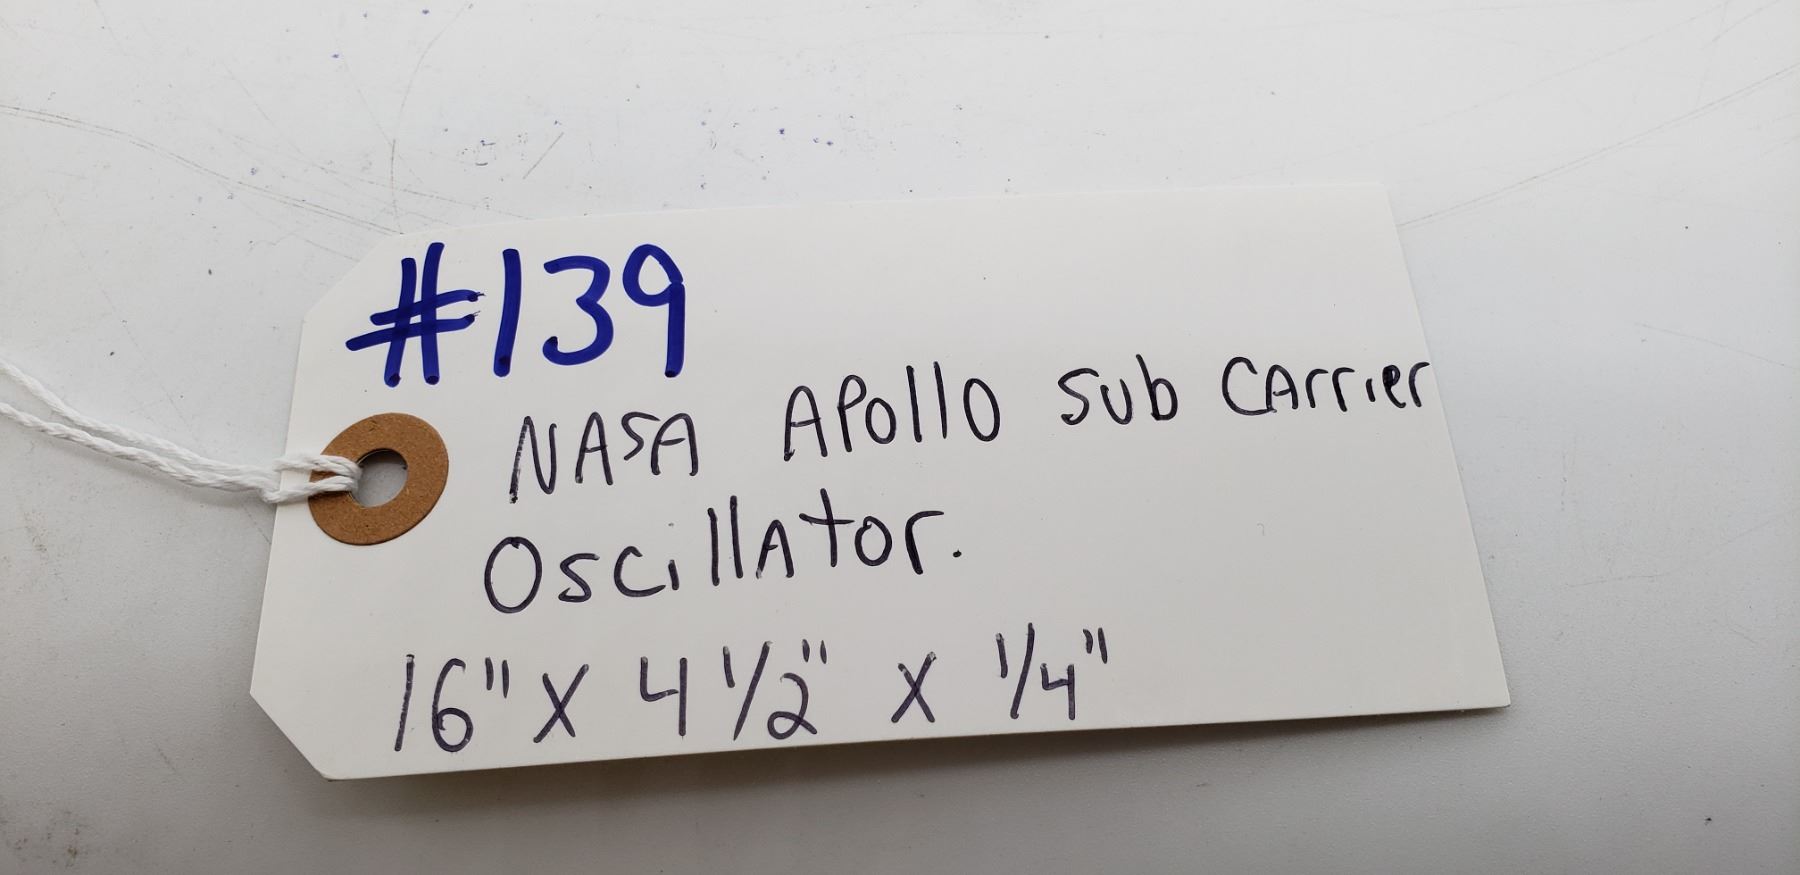 #139
NASA APollO SUb CArrier
OscillAtor.
16" X 4 1/2" X 1/4"